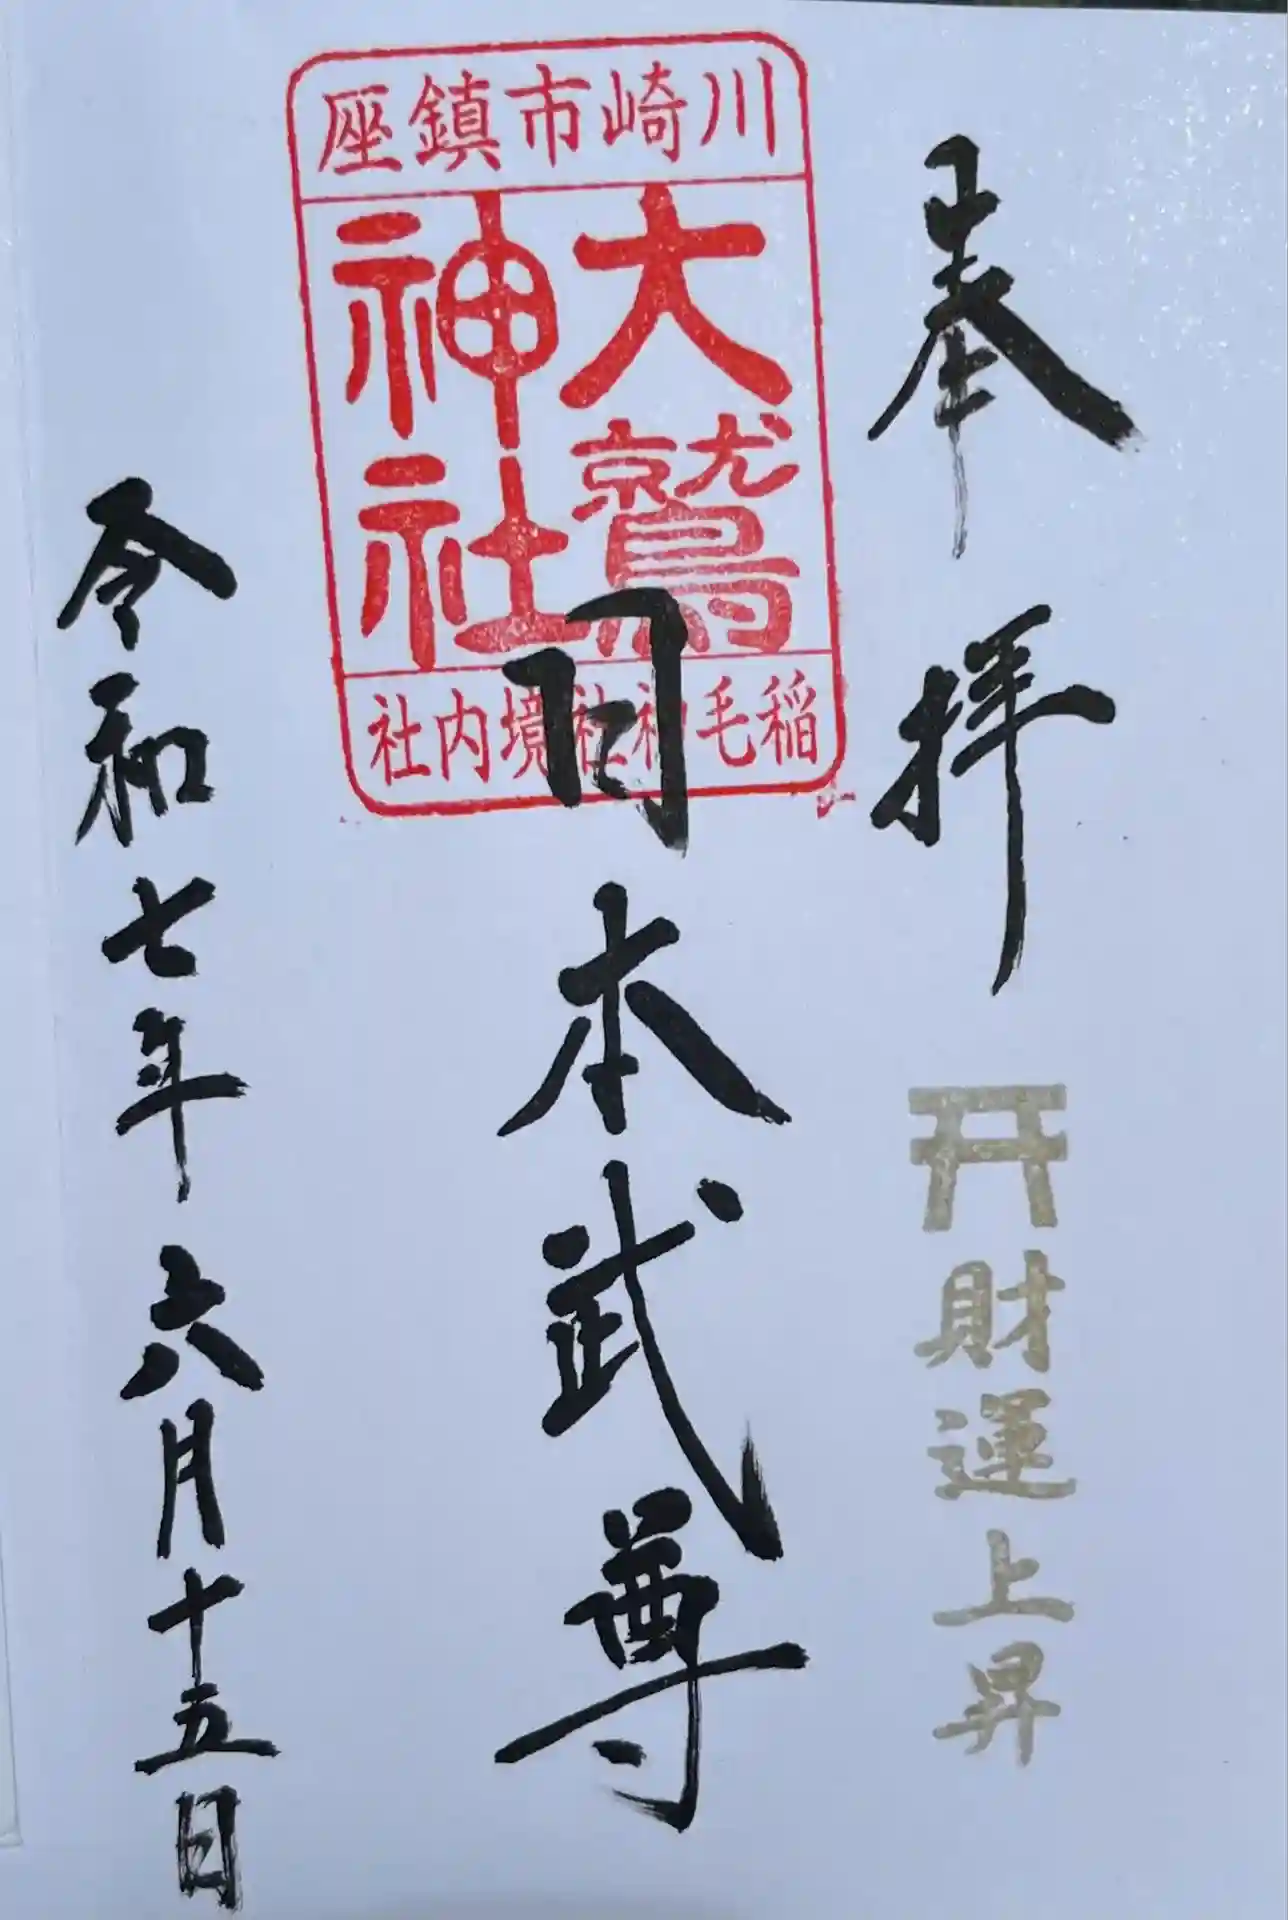 奉拝
財運上昇
川崎市鎮座
大鷲
神社
稲毛神社境内社
日本武尊
令和七年六月十五日